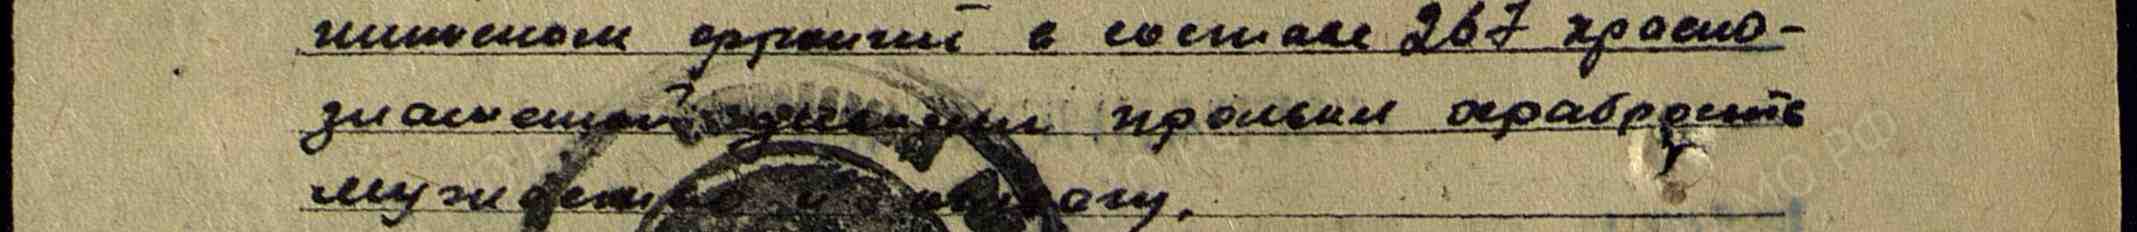 фронте в составе 267 красно-
знаменной дивизии проявил храбрость
мужество и отвагу.